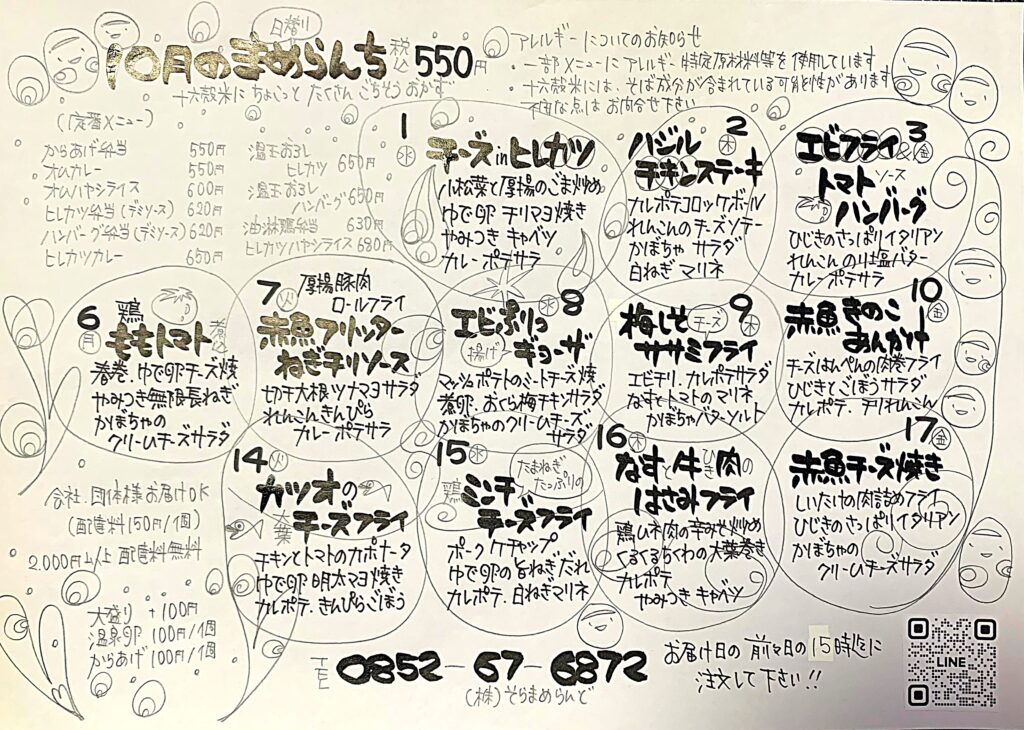 日替り
10月のまめらんち 税込550円
十六穀米に ちょこっと たくさん ごちそう おかず
アレルギーについてのお知らせ
・一部メニューにアレルギー特定原材料等を使用しています
・十六穀米には、そば成分が含まれている可能性があります
不明な点はお問合せ下さい
(定番メニュー)
からあげ弁当 550円
オムカレー 550円
オムハヤシライス 600円
ヒレカツ弁当(デミソース) 620円
ハンバーグ弁当(デミソース) 620円
ヒレカツカレー 650円
温玉おろし
ヒレカツ 650円
温玉おろし
ハンバーグ 650円
油淋鶏弁当 630円
ヒレカツハヤシライス 690円
1 水
チーズinヒレカツ
小松菜と厚揚のごま炒め
ゆで卵 チリマヨ焼き
やみつき キャベツ
カレーポテサラ
2 木
バジル
チキンステーキ
カルポテコロッケボール
れんこんのチーズソテー
かぼちゃ サラダ
白ねぎ マリネ
3 金
エビフライ&
トマトソース
ハンバーグ
ひじきのさっぱりイタリアン
れんこん のり塩バター
カレーポテサラ
6 月
鶏
ももトマト煮込
春巻.ゆで卵チーズ焼
やみつき無限長ねぎ
かぼちゃの
クリームチーズサラダ
7 火
厚揚豚肉
ロールフライ
赤魚フリッター
ねぎチリソース
切干大根ツナマヨサラダ
れんこんきんぴら
カレーポテサラ
8 水
エビぷりっ
揚げギョーザ
マッシュポテトのミートチーズ焼
春卵.おくら梅チキンサラダ
かぼちゃのクリームチーズ
サラダ
9 木
梅しそチーズ
ササミフライ
エビチリ.カルポテサラダ
なすとトマトのマリネ
かぼちゃバターソルト
10 金
赤魚きのこ
あんかけ
チーズはんぺんの肉巻フライ
ひじきとごぼうサラダ
カルポテ.チリれんこん
14 火
カツオの
大葉チーズフライ
チキンとトマトのカポナータ
ゆで卵 明太マヨ焼き
カルポテ.きんぴらごぼう
15 水
たまねぎ
たっぷりの
鶏ミンチ
チーズフライ
ポークケチャップ
ゆで卵の旨ねぎだれ
カルポテ.白ねぎマリネ
16 木
なすと牛ひき肉の
はさみフライ
鶏ひね肉の辛みそ炒め
くるくるちくわの大葉巻き
カルポテ
やみつき キャベツ
17 金
赤魚チーズ焼き
しいたけの肉詰めフライ
ひじきのさっぱりイタリアン
かぼちゃの
クリームチーズサラダ
会社.団体様お届けOK
(配達料150円/1個)
2,000円以上 配達料無料
大盛り +100円
温泉卵 100円/1個
からあげ 100円/1個
TEL 0852-67-6872
(株)そらまめらんど
お届け日の前々日の15時迄に
注文して下さい!!
LINE